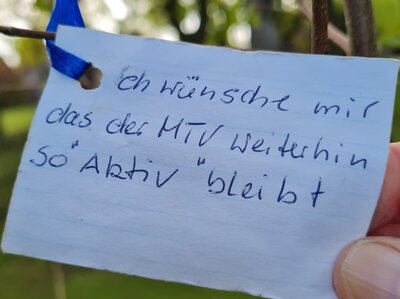 Ich wünsche mir
das der MTV weiterhin
so "Aktiv" bleibt